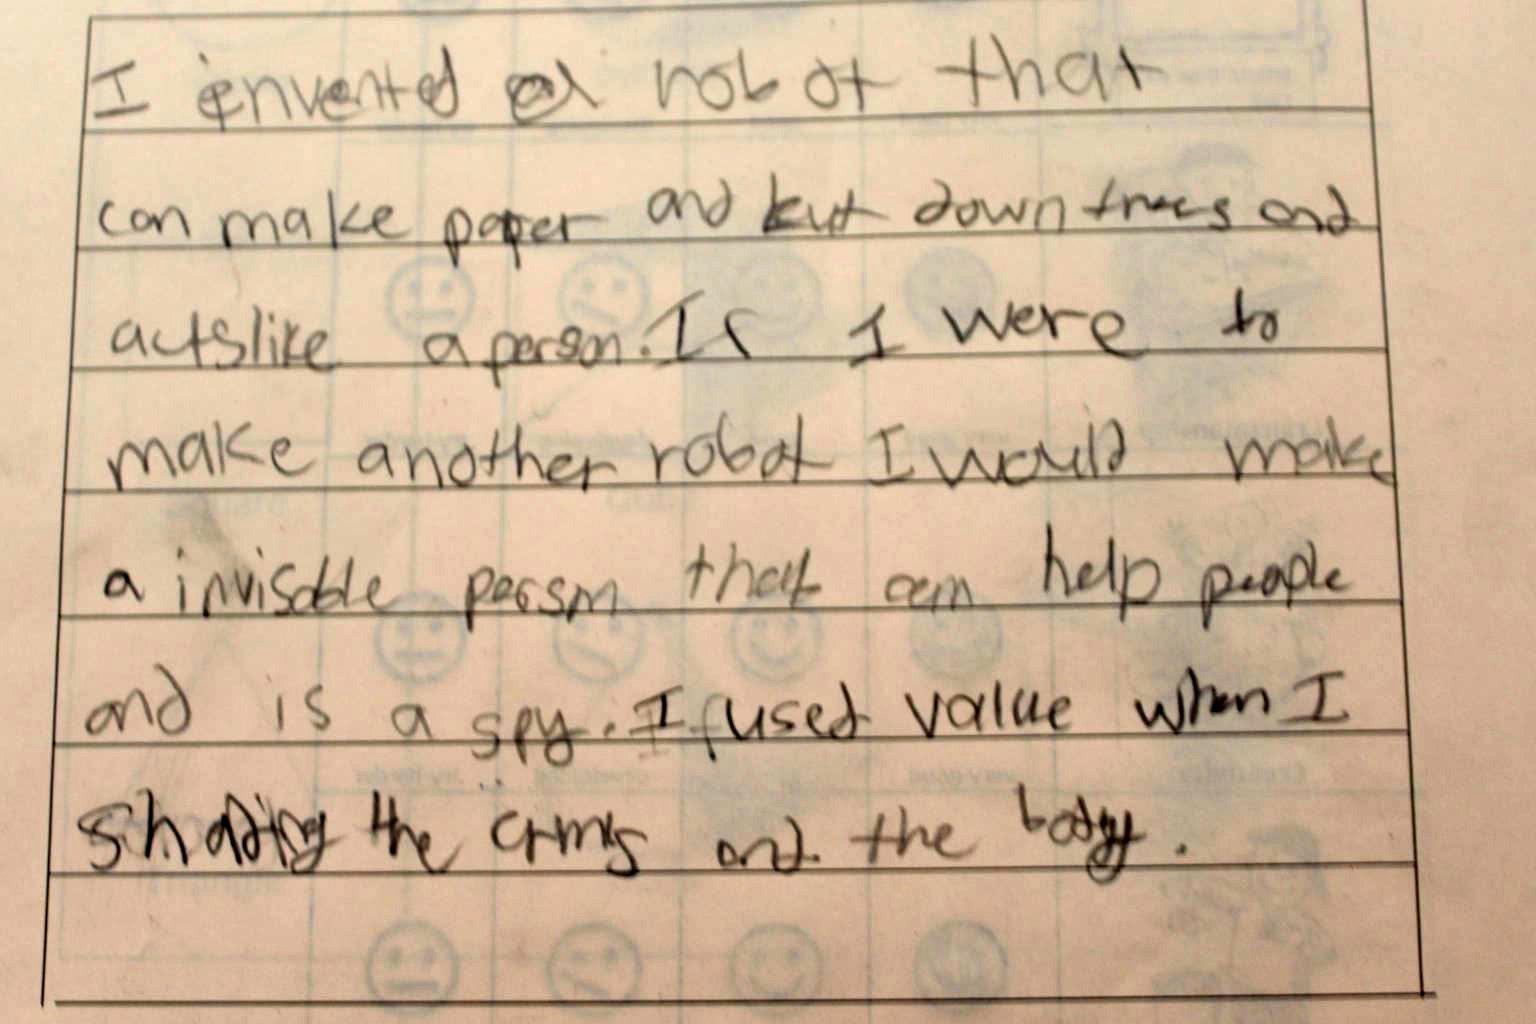 I envented a robot that
can make paper and kut down trees and
acts like a person. If I were to
make another robot I would make
a invisable person that can help people
and is a spy. I used value when I
shading the arms and the body.